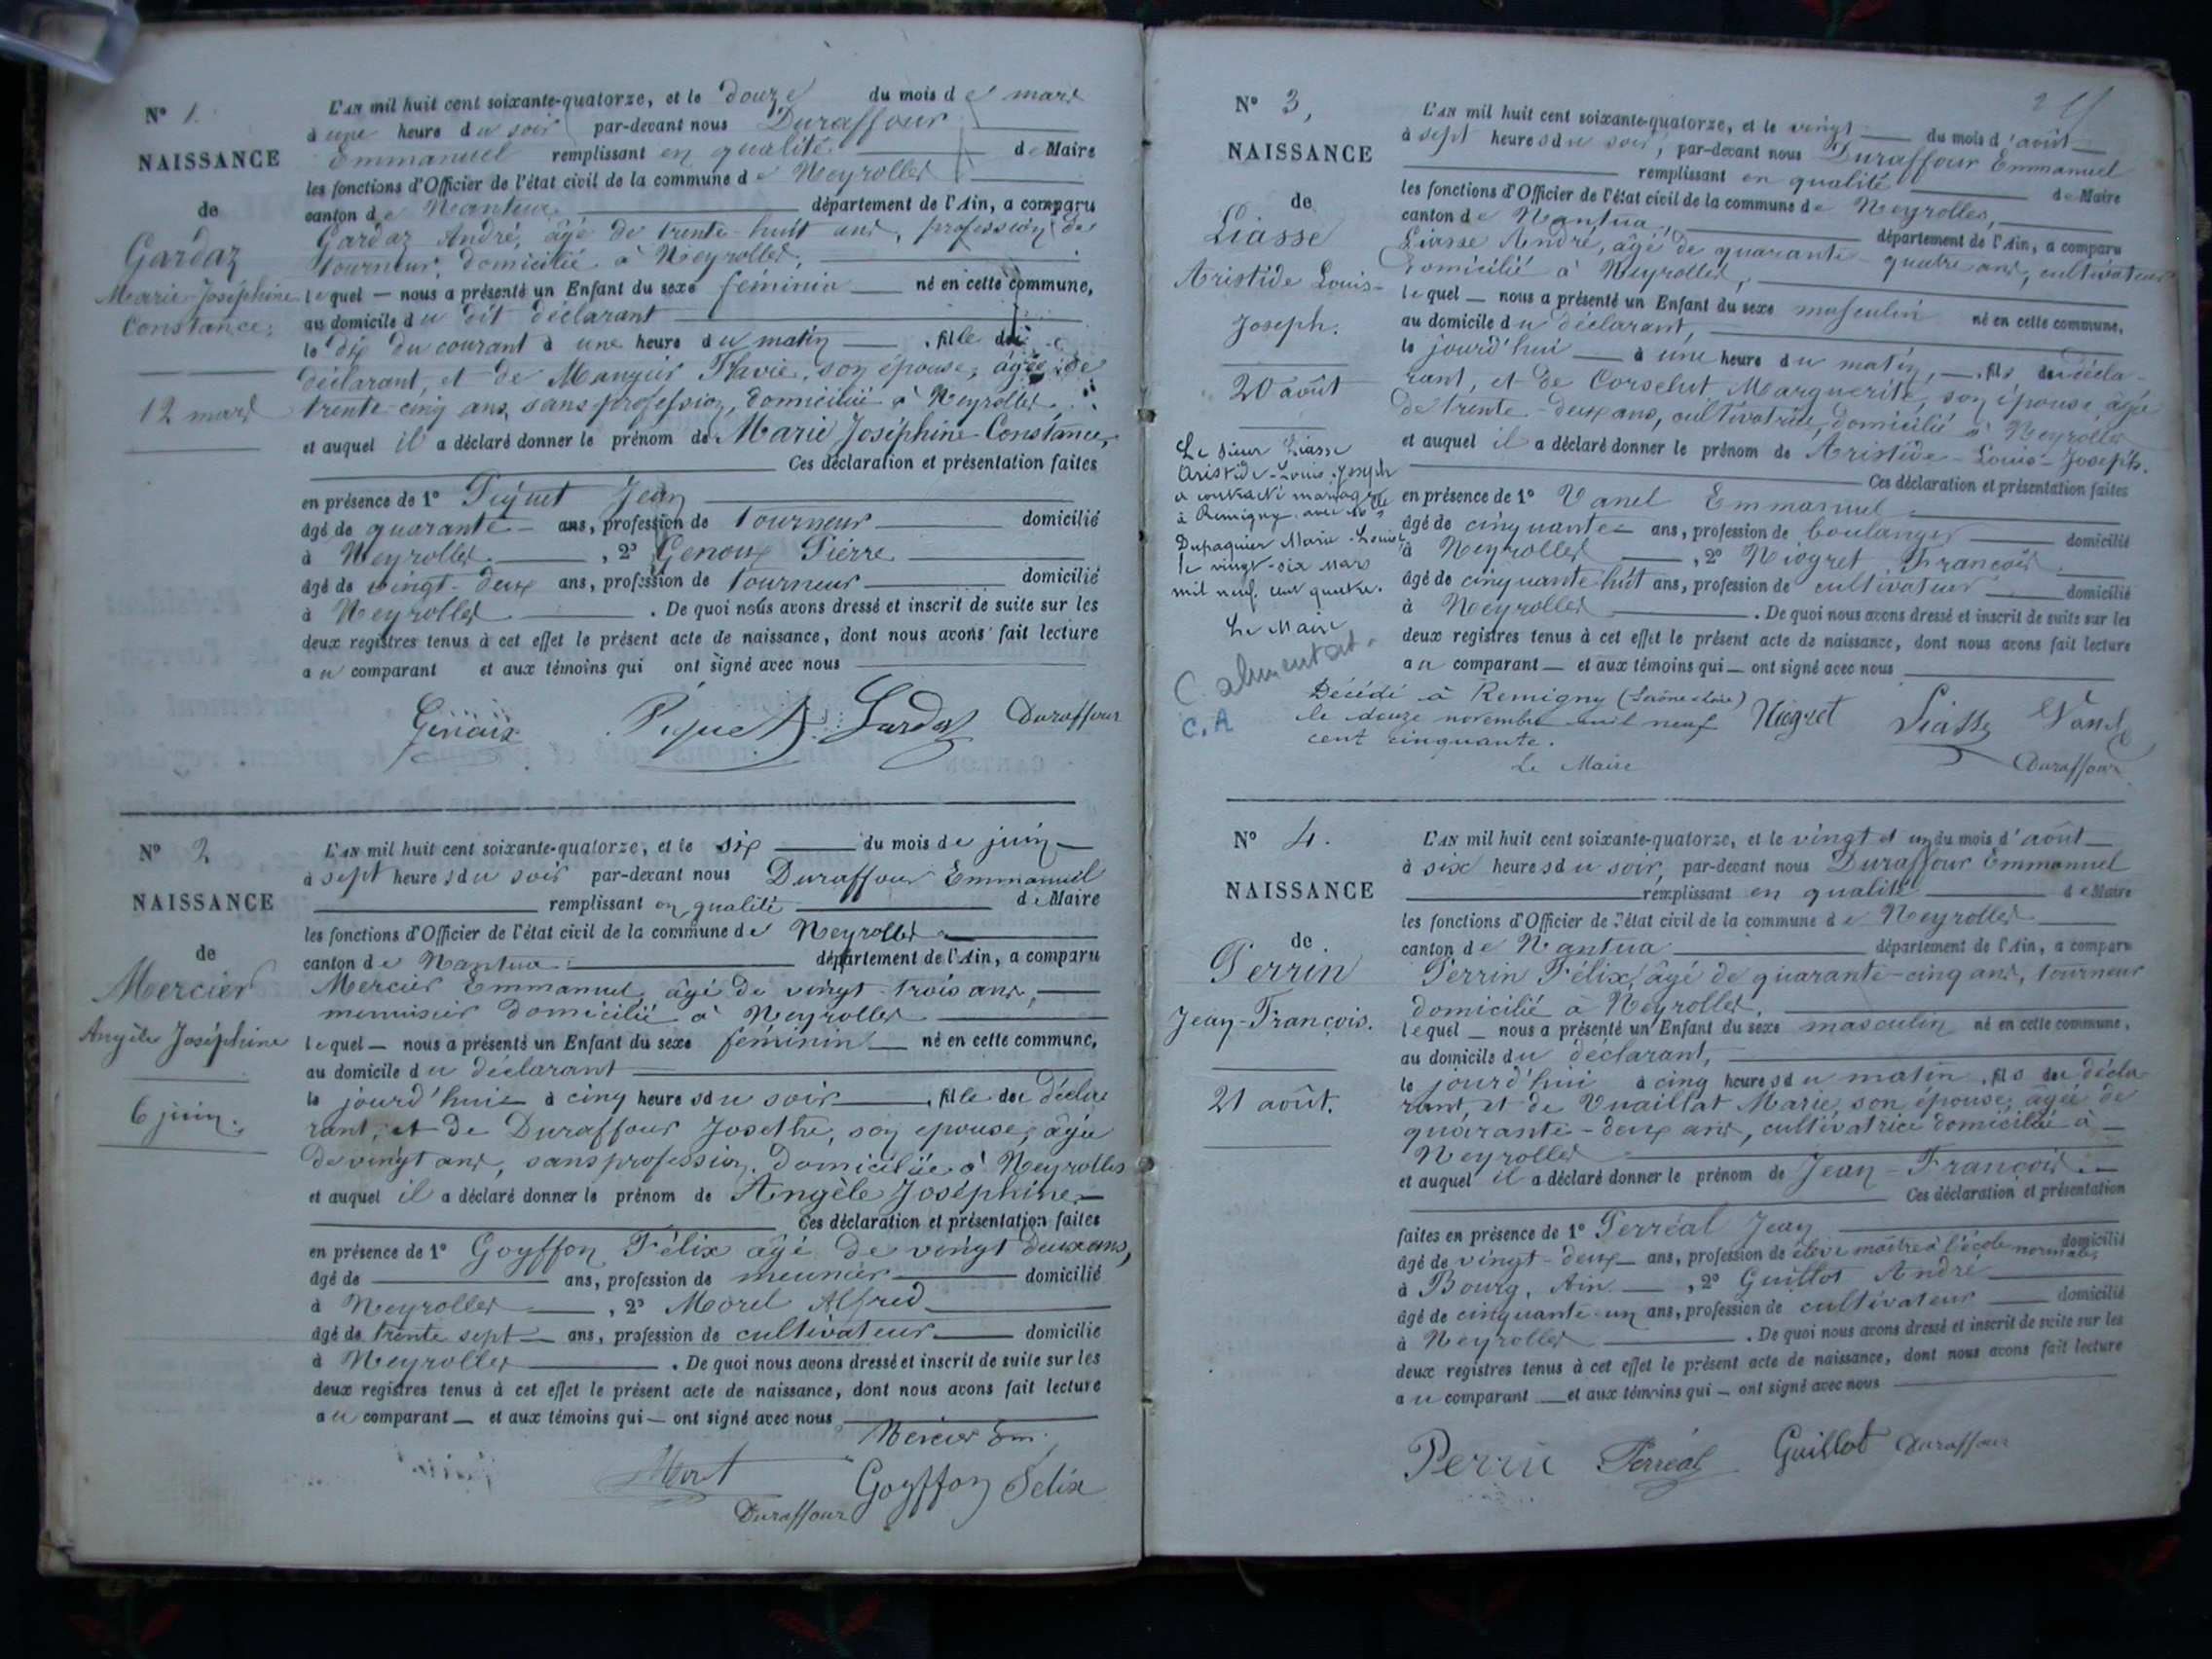 N° 1.
NAISSANCE
de
Gardaz
Marie-Joséphine
Constance.
12 mars
L'AN mil huit cent soixante-quatorze, et le douze du mois de mars
à une heure du soir par-devant nous Duraffour
Emmanuel remplissant en qualité de Maire
les fonctions d'Officier de l'état civil de la commune de Neyrolles
canton de Nantua département de l'Ain, a comparu
Gardaz André, âgé de trente-huit ans, profession de
tourneur, domicilié à Neyrolles,
lequel — nous a présenté un Enfant du sexe féminin né en cette commune,
au domicile du dit déclarant
le dix du courant à une heure du matin, fille du
déclarant, et de Flavie, son épouse, âgée de
trente-cinq ans, sans profession, domiciliée à Neyrolles
et auquel il a déclaré donner le prénom de Marie Joséphine-Constance,
Ces déclaration et présentation faites
en présence de 1° Piquet Jean
âgé de quarante ans, profession de tourneur domicilié
à Neyrolles, 2° Genoux Pierre
âgé de vingt-deux ans, profession de tourneur domicilié
à Neyrolles. De quoi nous avons dressé et inscrit de suite sur les
deux registres tenus à cet effet le présent acte de naissance, dont nous avons fait lecture
au comparant et aux témoins qui ont signé avec nous
Genoux Piquet Gardaz Duraffour
N° 2.
NAISSANCE
de
Mercier
Angèle Joséphine
6 juin.
L'AN mil huit cent soixante-quatorze, et le six du mois de juin
à sept heures du soir par-devant nous Duraffour Emmanuel
remplissant en qualité de Maire
les fonctions d'Officier de l'état civil de la commune de Neyrolles
canton de Nantua département de l'Ain, a comparu
Mercier Emmanuel, âgé de vingt-trois ans,
menuisier domicilié à Neyrolles
lequel — nous a présenté un Enfant du sexe féminin né en cette commune,
au domicile du déclarant
le jourd'hui à cinq heures du soir, fille du décla
rant, et de Duraffour Josethe, son epouse, âgée
de vingt ans, sans profession, domiciliée à Neyrolles
et auquel il a déclaré donner le prénom de Angèle Joséphine.
Ces déclaration et présentation faites
en présence de 1° Goyffon Félix âgé de vingt deux ans,
âgé de ans, profession de meunier domicilié
à Neyrolles, 2° Morel Alfred
âgé de trente sept ans, profession de cultivateur domicilié
à Neyrolles. De quoi nous avons dressé et inscrit de suite sur les
deux registres tenus à cet effet le présent acte de naissance, dont nous avons fait lecture
au comparant — et aux témoins qui — ont signé avec nous
Mercier Em.
Goyffon Félix
Duraffour
N° 3,
NAISSANCE
de
Liasse
Aristide Louis-
Joseph.
20 août
Le sieur Liasse
Aristide-Louis-Joseph
a contracté mariage
à Remigny avec
Dupaquier Marie-Louise
le vingt-six mars
mil neuf cent quatre.
Le Maire
C. alimentat.
C.A
L'AN mil huit cent soixante-quatorze, et le vingt du mois d'août
à sept heures du soir, par-devant nous Duraffour Emmanuel
remplissant en qualité de Maire
les fonctions d'Officier de l'état civil de la commune de Neyrolles,
canton de Nantua, département de l'Ain, a comparu
Liasse André, âgé de quarante-quatre ans, cultivateur
domicilié à Neyrolles,
lequel — nous a présenté un Enfant du sexe masculin né en cette commune,
au domicile du déclarant,
le jourd'hui à une heure du matin, fils du décla-
rant, et de Corselut Marguerite, son épouse, âgée
de trente-deux ans, cultivatrice, domicilié à Neyrolles
et auquel il a déclaré donner le prénom de Aristide-Louis-Joseph.
Ces déclaration et présentation faites
en présence de 1° Vanel Emmanuel
âgé de cinquante ans, profession de boulanger domicilié
à Neyrolles, 2° Niogret François
âgé de cinquante huit ans, profession de cultivateur domicilié
à Neyrolles. De quoi nous avons dressé et inscrit de suite sur les
deux registres tenus à cet effet le présent acte de naissance, dont nous avons fait lecture
au comparant — et aux témoins qui — ont signé avec nous
Décédé à Remigny (Saône & Loire)
le douze novembre mil neuf
cent cinquante.
Le Maire
Niogret Liasse Vanel
Duraffour
N° 4.
NAISSANCE
de
Perrin
Jean-François.
21 août.
L'AN mil huit cent soixante-quatorze, et le vingt et un du mois d'août
à six heures du soir, par-devant nous Duraffour Emmanuel
remplissant en qualité de Maire
les fonctions d'Officier de l'état civil de la commune de Neyrolles
canton de Nantua département de l'Ain, a comparu
Perrin Félix, âgé de quarante-cinq ans, tourneur
domicilié à Neyrolles,
lequel — nous a présenté un Enfant du sexe masculin né en cette commune,
au domicile du déclarant,
le jourd'hui à cinq heures du matin, fils du décla
rant, et de Vuaillat Marie son épouse âgée de
quarante-deux ans, cultivatrice domiciliée à
Neyrolles
et auquel il a déclaré donner le prénom de Jean-François.
Ces déclaration et présentation
faites en présence de 1° Perréal Jean
âgé de vingt-deux ans, profession de élève maître à l'école normale, domicilié
à Bourg, Ain, 2° Guillot André
âgé de cinquante-un ans, profession de cultivateur domicilié
à Neyrolles. De quoi nous avons dressé et inscrit de suite sur les
deux registres tenus à cet effet le présent acte de naissance, dont nous avons fait lecture
au comparant — et aux témoins qui — ont signé avec nous
Perrin Perréal Guillot Duraffour